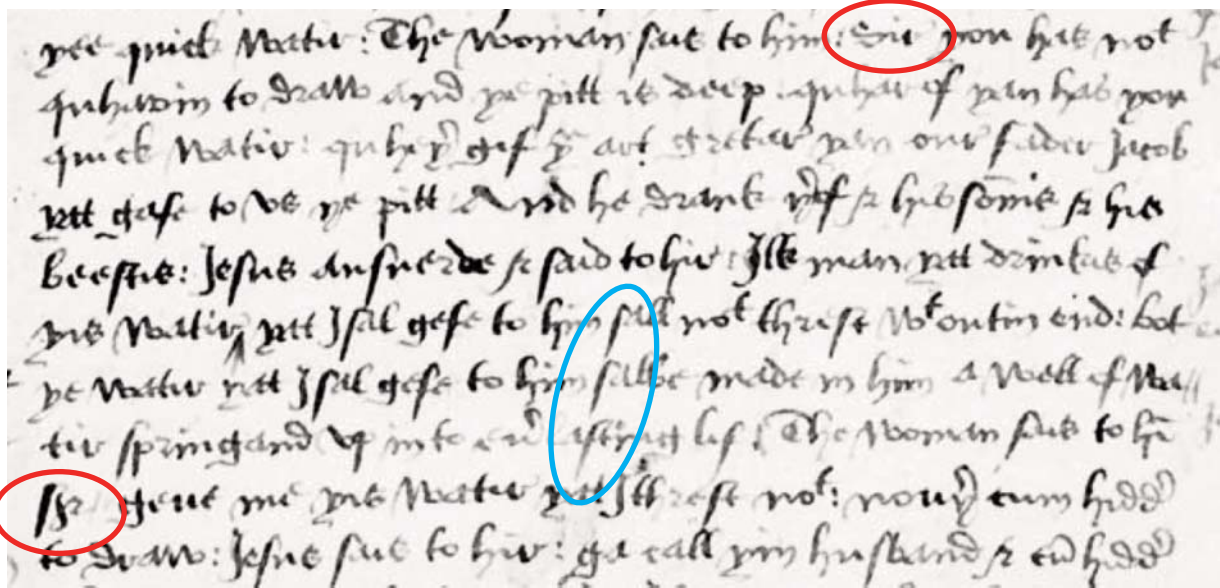 yee quick Watir: The woman sais to him: Sir you has not
quharin to draw and ye pitt is deep. quhar of yan has you
quick Watir: quheyʳ gif yᵘ art gretar yan our fader Jacob
yatt gafe to vs ye pitt And he drank yʳof & his soñis & his
beestis: Jesus ansuerde & said to hir: Ilk man yatt drinkas of
yis Watir, yatt I sal gefe to him sall not threst wᵗoutin eend: bot
ye Watir yatt I sal gefe to him salbe made in him a Well of Wa//
tir springand vp into euʳlasting lif. The woman sais to hī
Sir geue me yis Watir yatt I threst not: nouyʳ cum hiddʳ
to draw: Jesus sais to hir: ga call yin husband & cū hiddʳ